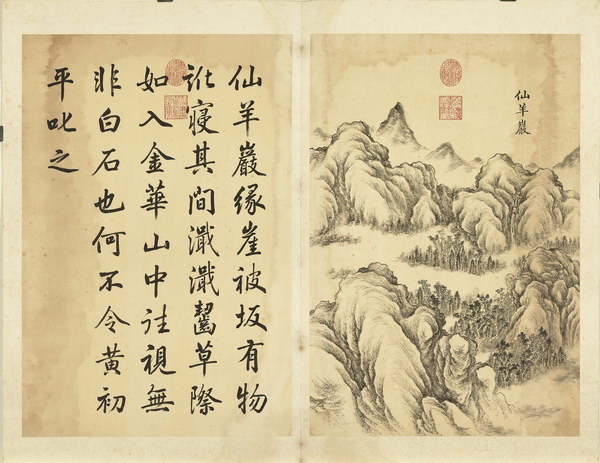 仙羊巖
仙羊巖緣崖被坂有物
訛寢其間濈濈齧草際
如入金華山中往視無
非白石也何不令黃初
平叱之